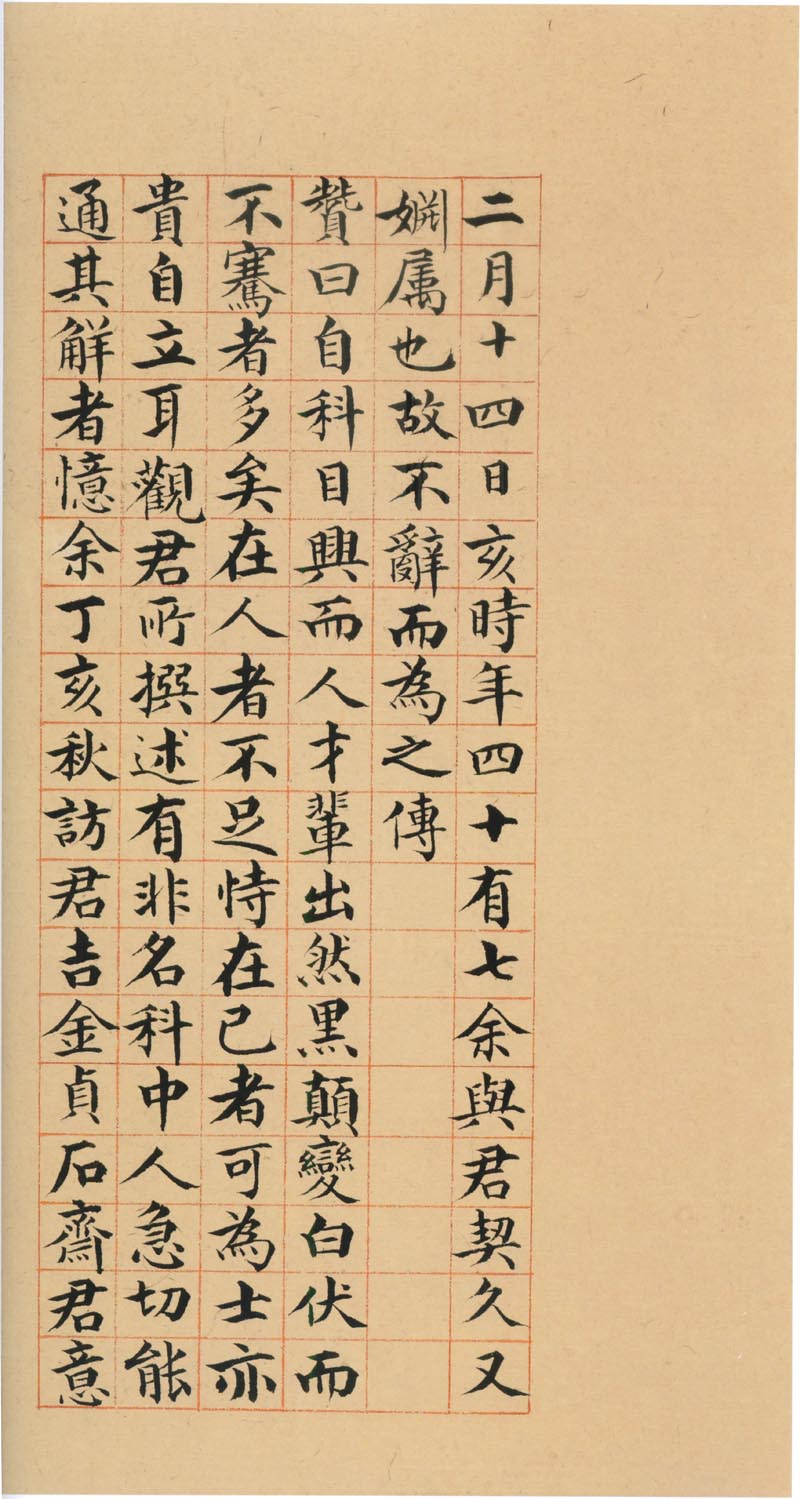 二月十四日亥時年四十有七余與君契久又
姻属也故不辭而為之傳
贊曰自科目興而人才輩出然黑顛變白伏而
不騫者多矣在人者不足恃在已者可為士亦
貴自立耳觀君所撰述有非名科中人急切能
通其解者憶余丁亥秋訪君吉金貞石齋君意